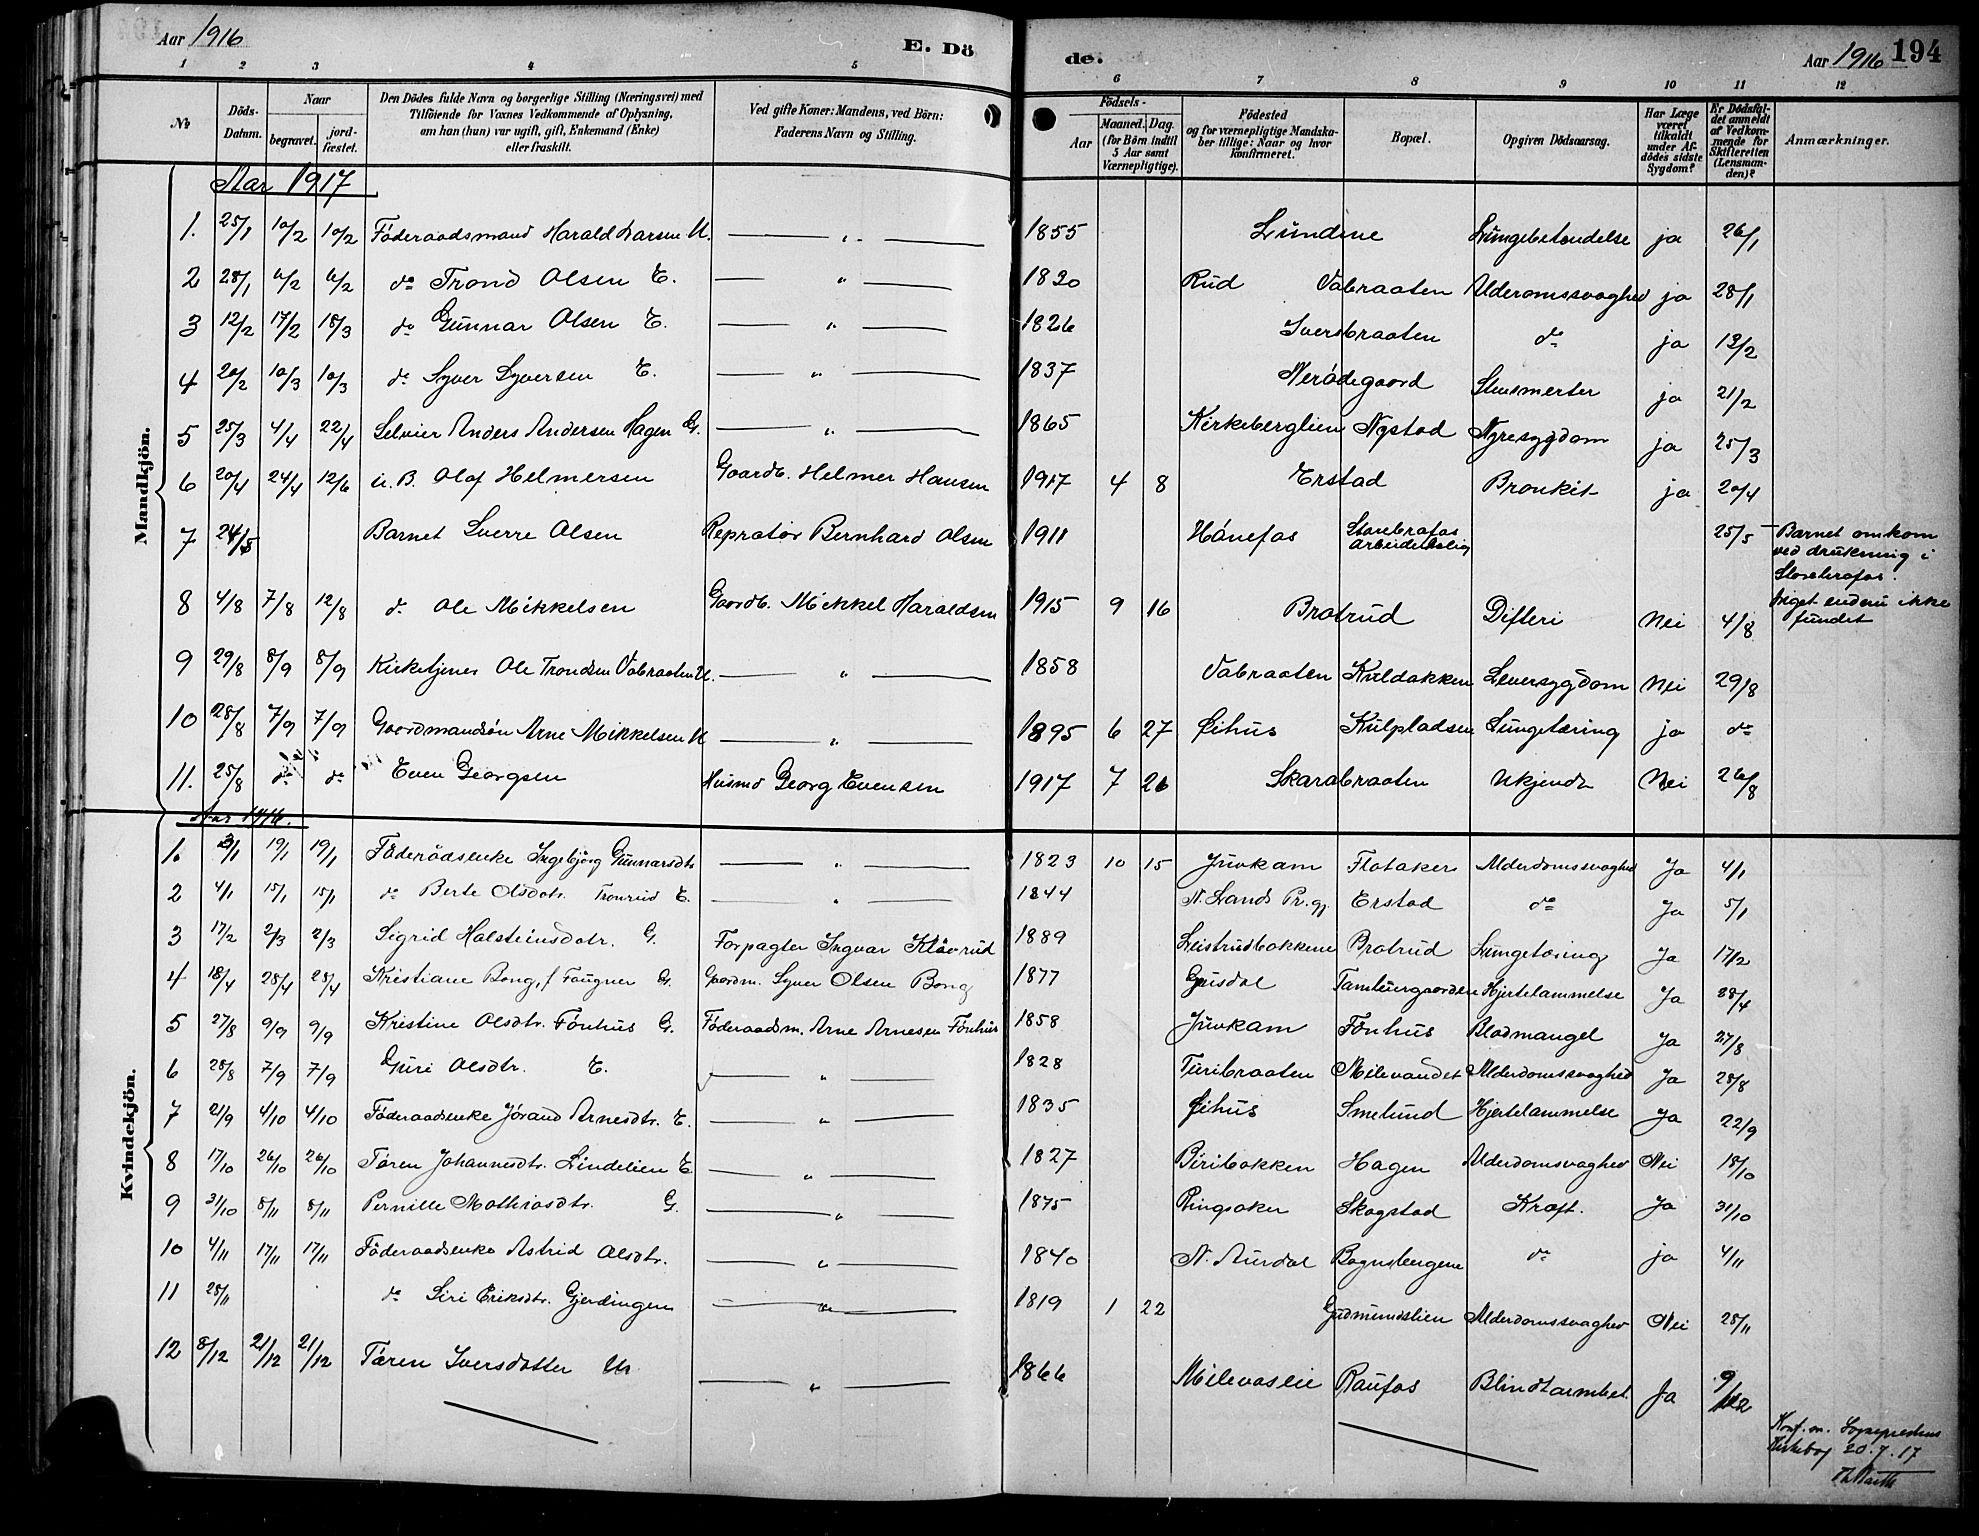 Aar 1916
E. Dö
de.
Aar 1916 194
1 2 3 4 5 6 7 8 9 10 11 12
No
Döds-Datum.
Naar
begravet. jord-fæstet.
Den Dödes fulde Navn og borgerlige Stilling (Næringsvei) med
Tilföiende for Voxnes Vedkommende af Oplysning,
om han (hun) var ugift, gift, Enkemand (Enke)
eller fraskilt.
Ved gifte Koner: Mandens, ved Börn:
Faderens Navn og Stilling.
Födsels-
Aar Maaned. Dag.
(for Börn indtil 5 Aar samt Værnepligtige).
Födested
og for værnepligtige Mandska-
ber tillige: Naar og hvor
konfirmeret.
Bopæl.
Opgiven Dödsaarsag.
Har Læge været tilkaldt under Af-dödes sidste Sygdom?
Er Dödsfal-det anmeldt af Vedkom-mende for Skifteretten (Lensman-den)?
Anmærkninger.
Mandkjön.
Aar 1917
1. 25/1 10/2 10/2 Föderaadsmand Harald Larsen U. — " — 1855 Lundene Lungebetendelse ja 26/1
2 28/1 6/2 6/2 do Trond Olsen E. — " — 1830 Rud Vabraaten Alderomssvaghed ja 28/1
3 12/2 17/2 18/3 do Gunnar Olsen E. — " — 1826 Iversbraaten do ja 13/2
4 20/2 10/3 10/3 do Syver Syversen E. — " — 1837 Nerödegaard Stensmerter ja 21/2
5 25/3 4/4 22/4 Selveier Anders Andersen Hagen G. — " — 1865 Kirkeberglien Nystad Nyresygdom ja 25/3
6 20/4 24/4 12/6 u. B. Olaf Helmersen Gaardb. Helmer Hansen 1917 4 8 Erstad Bronkit ja 20/4
7 24/5 Barnet Sverre Olsen Repratör Bernhard Olsen 1911 Hönefos Storebrofos arbeiderbolig 25/5 Barnet omkom
ved drukning i
Storebrofos.
Liget endnu ikke
fundet
8 4/8 7/8 12/8 do Ole Mikkelsen Gaardb. Mikkel Haraldsen 1915 9 16 Brotrud Difteri Nei 4/8
9 29/8 8/9 8/9 Kirketjener Ole Trondsen Vabraaten U. — " — 1858 Vabraaten Kuldakken Leversygdom Nei 29/8
10 28/8 7/9 7/9 Gaardmandsön Arne Mikkelsen U — " — 1895 6 27 Öihus Kulpladsen Lungetæring ja do
11. 25/8 do do Even Georgsen Husmd Georg Evensen 1917 7 26 Skarabraaten Ukjendt Nei 26/8
Kvindekjön.
Aar 1916.
1. 3/1 19/1 19/1 Föderådsenke Ingebjörg Gunnarsdtr — " — 1823 10 15 Juvkam Flotaker Alderdomssvaghed Ja 4/1
2 4/1 15/1 15/1 do Berte Olsdotr. Tronrud E. — " — 1844 N. Lands Pr.gj. Erstad do Ja 5/1
3 17/2 2/3 2/3 Sigrid Halsteinsdotr. G. Forpagter Ingvar Klåvrud 1889 Leistrudbakkene Brotrud Lungetæring Ja 17/2
4 18/4 28/4 28/4 Kristiane Bong, f Faugner G. Gaardm. Syver Olsen Bong 1877 Gausdal Hjertelammelse Ja 28/4
5 27/8 9/9 9/9 Kristine Olsdtr. Fönhus G. Föderaadsm. Arne Arnesen Fönhus 1858 Juvkam Fönhus Blodmangel Ja 27/8
6 28/8 7/9 7/9 Guri Olsdtr. E. — " — 1828 Turibraaten Milevandet Alderdomssvaghed Ja 28/8
7 21/9 4/10 4/10 Föderaadsenke Jörand Arnesdtr. E. — " — 1835 Öihus Smelund Hjertelammelse Ja 22/9
8 17/10 26/10 26/10 Tören Johannesdtr. Lindelien E — " — 1827 Biribakken Hagen Alderdomsvaghed Nei 18/10
9 31/10 8/11 8/11 Pernille Mathiasdtr. G. — " — 1875 Ringsaker Skogstad Kræft. Ja 31/10
10 4/11 17/11 17/11 Föderaadsenke Astrid Olsdtr. — " — 1840 N. Aurdal Bagnsbergene do ja 4/11
11 28/11 do Siri Eriksdtr. Gjerdingen — " — 1819 1 22 Gudmundslien Alderdomssvaghed Nei 28/11
12 8/12 21/12 21/12 Tören Iversdatter U — " — 1866 Milevaslie Raufos Blindtarmbet. Ja 9/12
Konf. m. Sogneprestens
Kirkebog 20.7.17